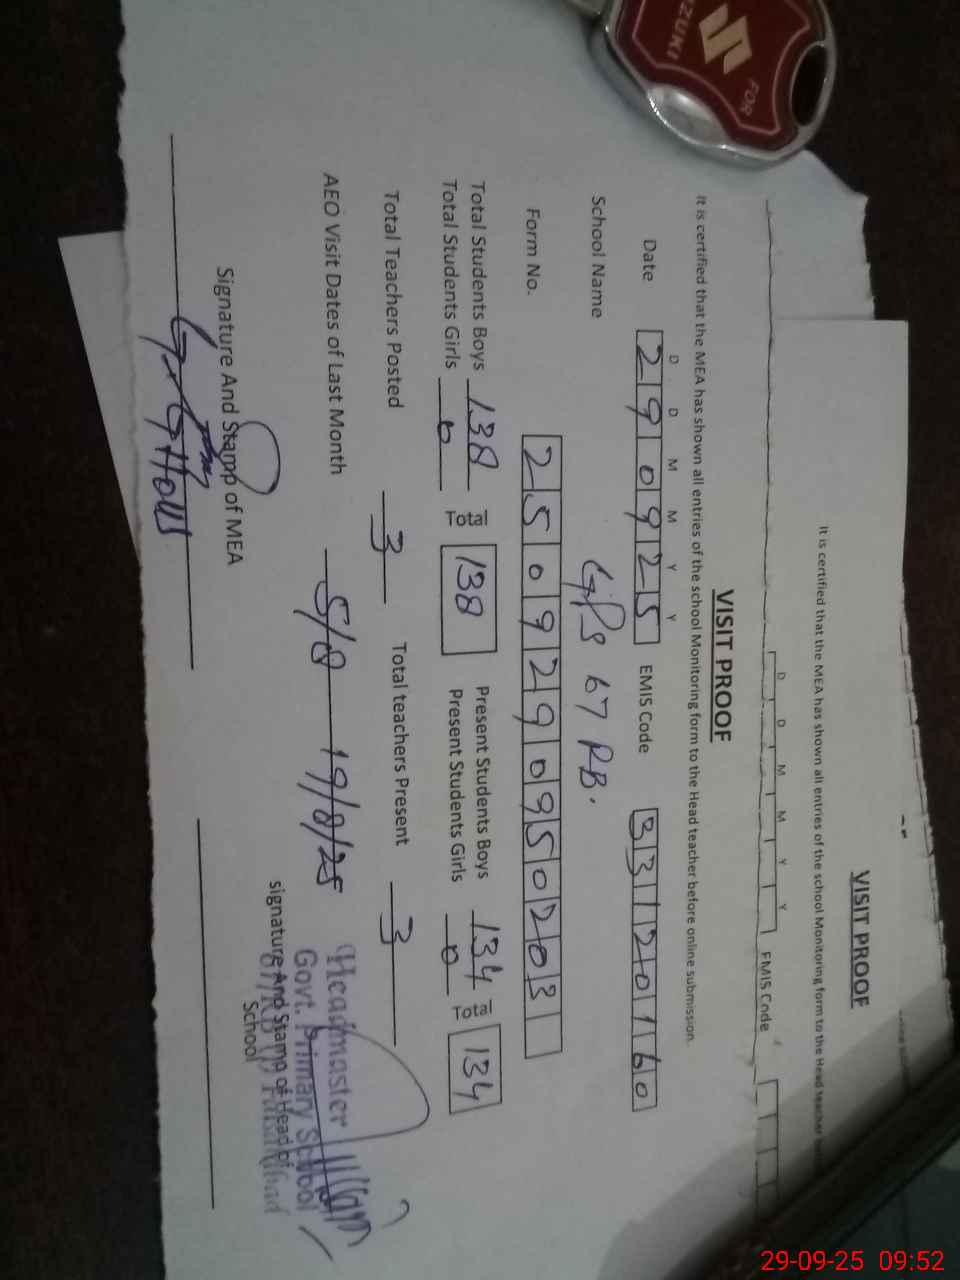 VISIT PROOF
It is certified that the MEA has shown all entries of the school Monitoring form to the Head teacher
D D M M Y Y
EMIS Code
VISIT PROOF
It is certified that the MEA has shown all entries of the school Monitoring form to the Head teacher before online submission.
D D M M Y Y
Date 290925 EMIS Code 33120160
School Name GPS 67 RB.
Form No. 2509290950203
Total Students Boys 138 Total 138 Present Students Boys 134 Total 134
Total Students Girls 0 Present Students Girls 0
Total Teachers Posted 3 Total teachers Present 3
AEO Visit Dates of Last Month 5/8 19/8/25
Headmaster
Govt. Primary School
67/RB
Signature And Stamp of MEA
signature And Stamp of Head of
School
SUZUKI
FOR
29-09-25 09:52